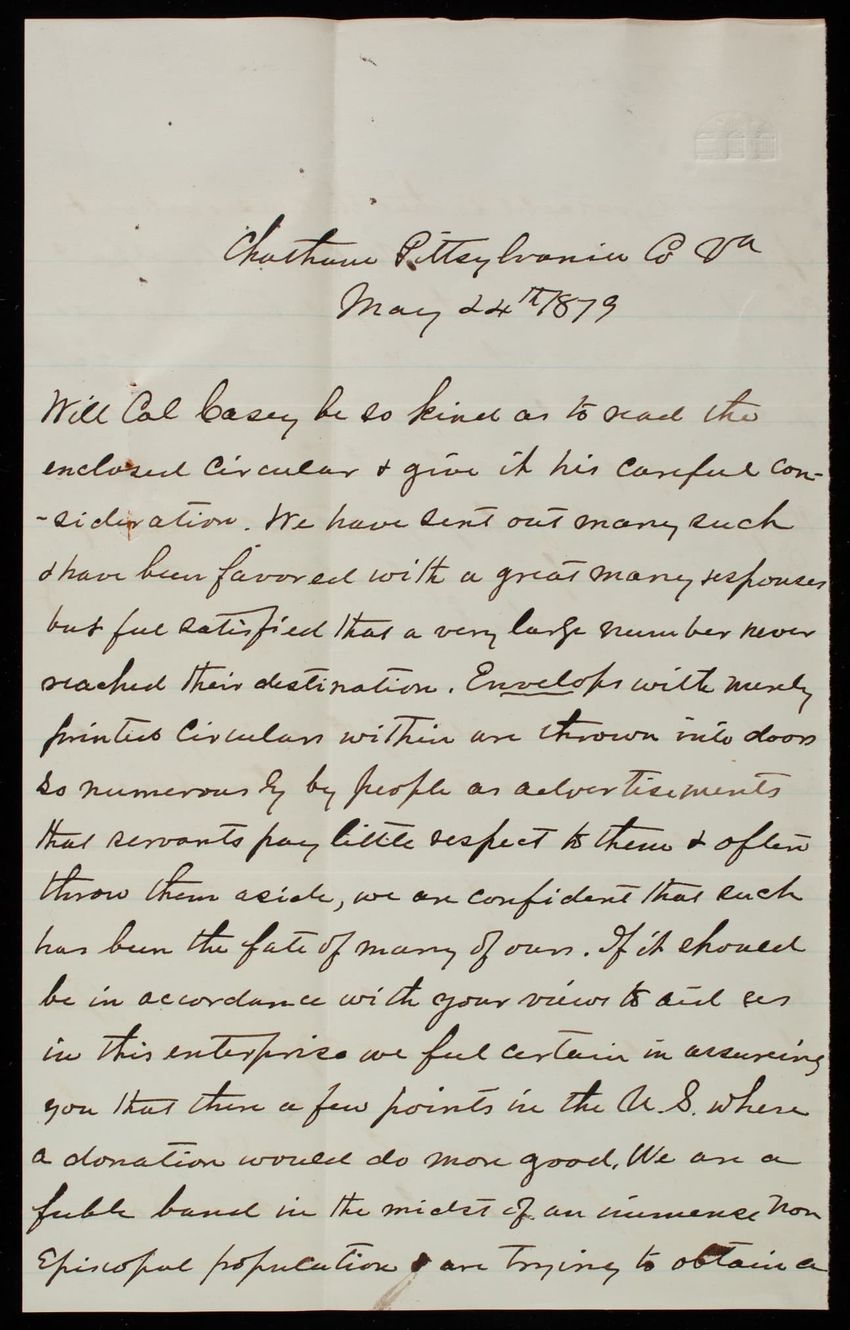 Chatham Pittsylvania Co Va
May 24th/879
Will Col Casey be so kind as to read the
enclosed circular & give it his careful con-
-sideration. We have sent out many such
& have been favored with a great many responses
but feel satisfied that a very large number never
reached their destination. Envelops with merely
printed circulars within are thrown into doors
so numerously by people as advertisements
that servants pay little respect to them & often
throw them aside, we are confident that such
has been the fate of many of ours. If it should
be in accordance with your views to aid us
in this enterprise we feel certain in assureing
you that there a few points in the U.S. where
a donation would do more good. We are a
feeble band in the midst of an immense non
Episcopal population & are trying to obtain a